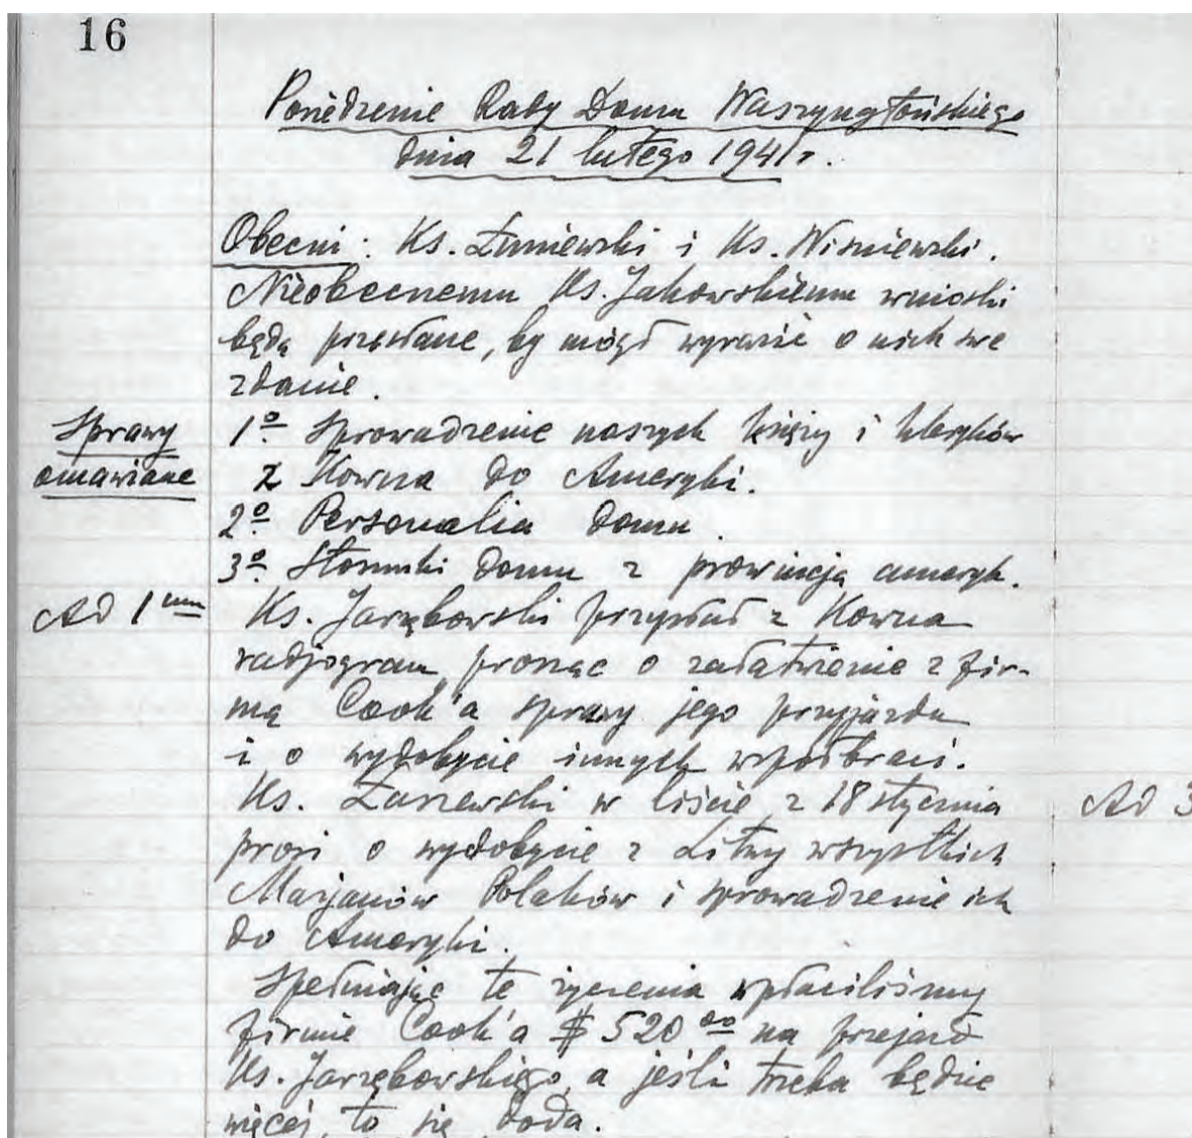 16
Posiedzenie Rady Domu Waszyngtońskiego
dnia 21 lutego 1941 r.
Obecni: Ks. Łuniewski i Ks. Wiśniewski.
Nieobecnemu Ks. Jakowskiemu wnioski
będą przesłane, by mógł wyrazić o nich swe
zdanie.
Sprawy
omawiane
1º Sprowadzenie naszych księży i kleryków
z Kowna do Ameryki.
2º Personalia domu.
3º Stosunki domu z prowincją ameryk.
Ad 1um
Ks. Jarzębowski przysłał z Kowna
radjogram prosząc o załatwienie z fir-
mą Cook'a sprawy jego przyjazdu
i o wydobycie innych współbraci.
Ks. Łaszewski w liście z 18 stycznia
Ad 3
prosi o wydobycie z Litwy wszystkich
Marjanów Polaków i sprowadzenie ich
do Ameryki.
Spełniając te życzenia wpłaciliśmy
firmie Cook'a $ 520 00 na przejazd
Ks. Jarzębowskiego, a jeśli trzeba będzie
więcej, to się doda.